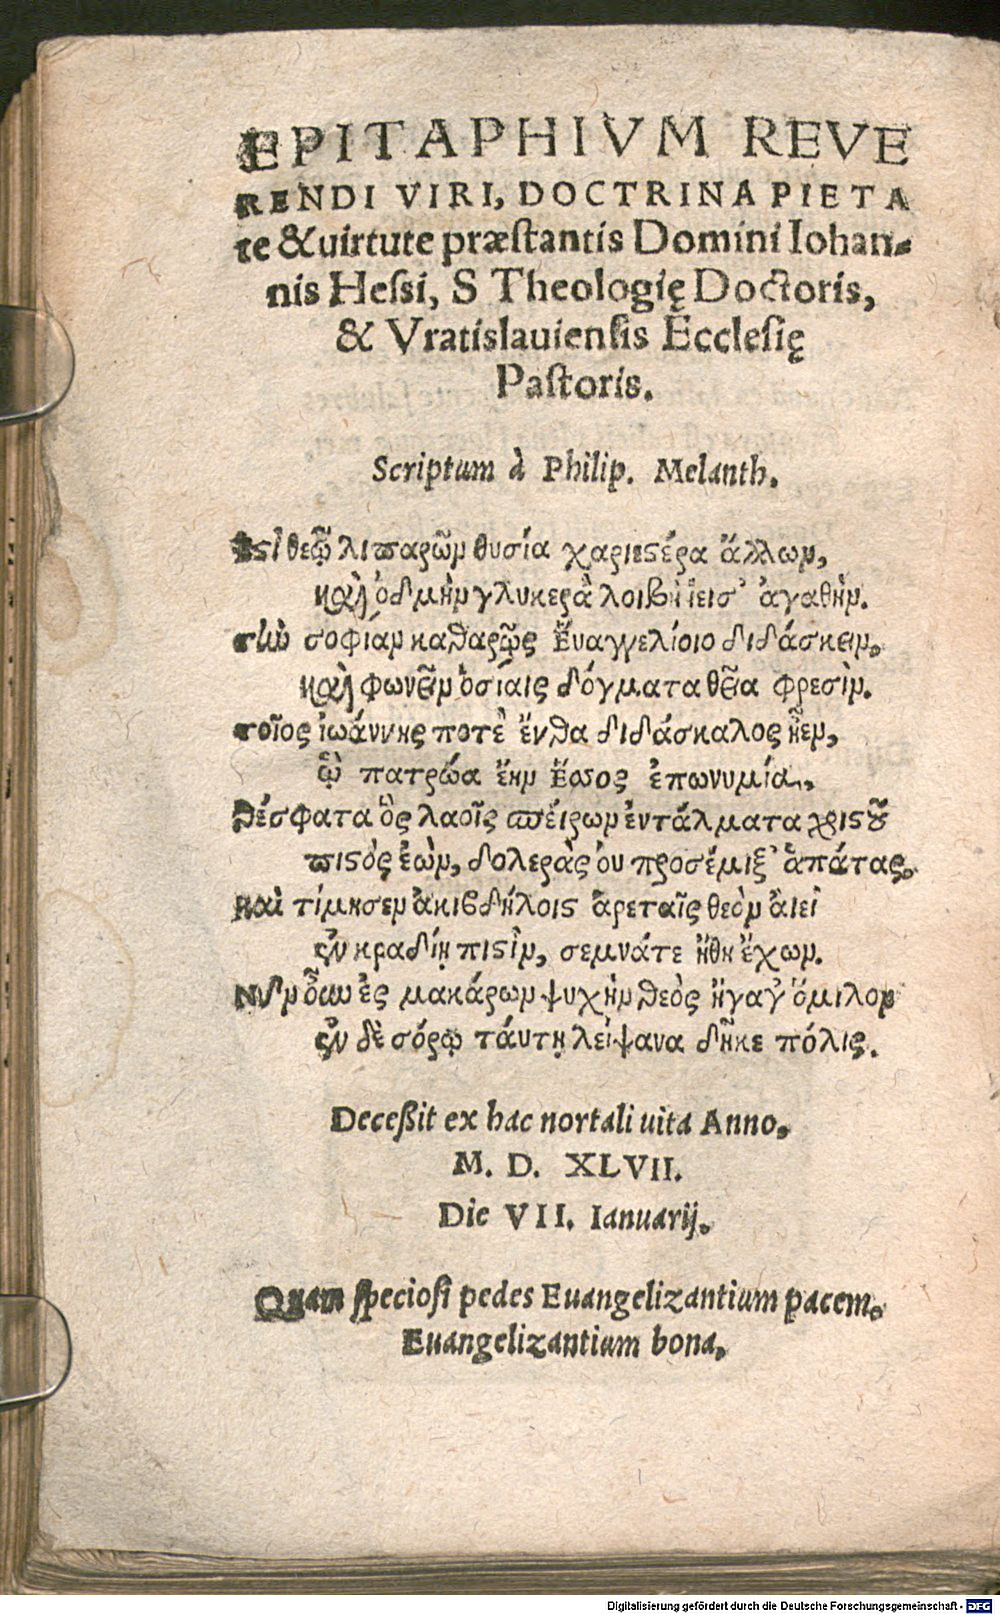 EPITAPHIVM REVE
RENDI VIRI, DOCTRINA PIETA
te & uirtute præstantis Domini Iohan-
nis Hessi, S Theologię Doctoris,
& Vratislauiensis Ecclesię
Pastoris.
Scriptum à Philip. Melanth.
Εστὶ θεῷ λιπαρῶν θυσία χαριεστέρα ἄλλων,
καὶ ὀδμὴν γλυκερὰ λοιβὴ ἵεισ' ἀγαθὴν.
τὴν σοφίαν καθαρῶς Ἐυαγγελίοιο διδάσκειν.
καὶ φωνεῖν ὁσίαις δόγματα θεῖα φρεσὶν.
τοῖος ἰωάννης ποτὲ ἔνθα διδάσκαλος ἦεν,
ᾧ πατρῴα ἔην Ἕσσος ἐπωνυμία.
Θέσφατα ὃς λαοῖς πείρων ἐντάλματα χριστοῦ
πιστὸς ἐὼν, δολερὰς ὀυ προσέμιξ' ἀπάτας.
καὶ τίμησεν ἀκιβδήλοις ἀρεταῖς θεὸν ἀιεὶ
ἐν κραδίῃ πιστὶν, σεμνάτε ἤθη ἔχων.
Νῦν ὅυν ἐς μακάρων ψυχὴν θεὸς ἤγαγ' ὅμιλον
ἐν δὲ σόρῳ τάυτῃ λείψανα θῆκε πόλις.
Decessit ex hac nortali uita Anno.
M. D. XLVII.
Die VII. Ianuarij.
Quam speciosi pedes Euangelizantium pacem.
Euangelizantium bona.
Digitalisierung gefördert durch die Deutsche Forschungsgemeinschaft - DFG